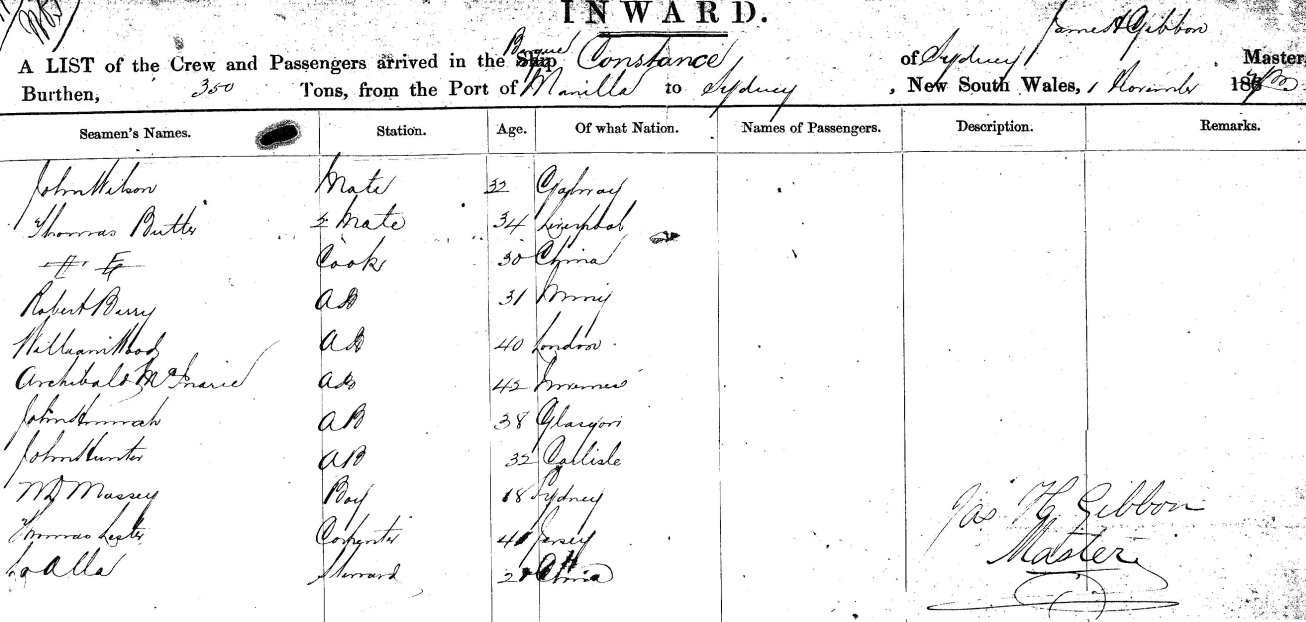 INWARD.
James H Gibbon
A LIST of the Crew and Passengers arrived in the Ship Barque Constance of Sydney Master
Burthen, 350 Tons, from the Port of Manilla to Sydney, New South Wales, 1 November 187
Seamen's Names. Station. Age. Of what Nation. Names of Passengers. Description. Remarks.
John Wilson Mate 32 Galway
Thomas Butler 2 Mate 34 Liverpool
Cook 30 China
Robert Barry AB 31 
William Wood AB 40 London
Archibald AB 42
John Hannah AB 38 Glasgow
John Hunter AB 32 Carlisle
W D Massey Boy 18 Sydney
Thomas Lester Carpenter 41 Jersey
Alla Steward China
Jas H Gibbon
Master